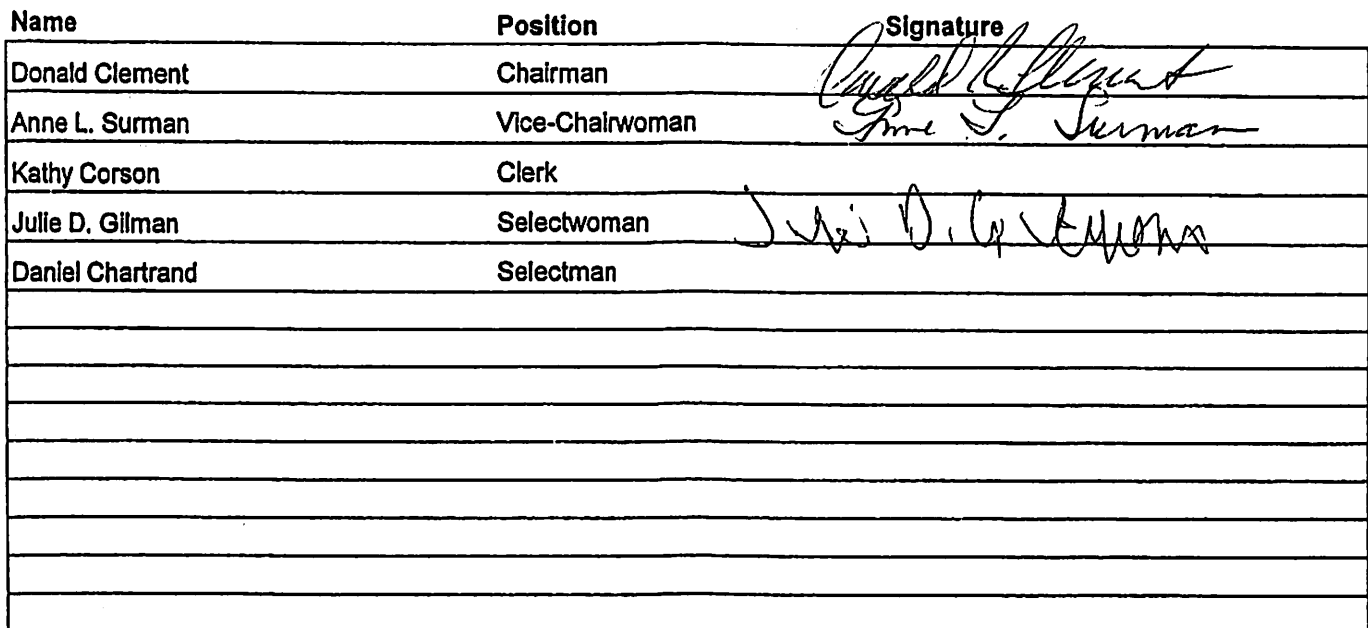 Name Position Signature
Donald Clement Chairman Donald R. Clement
Anne L. Surman Vice-Chairwoman Anne L. Surman
Kathy Corson Clerk
Julie D. Gilman Selectwoman
Daniel Chartrand Selectman